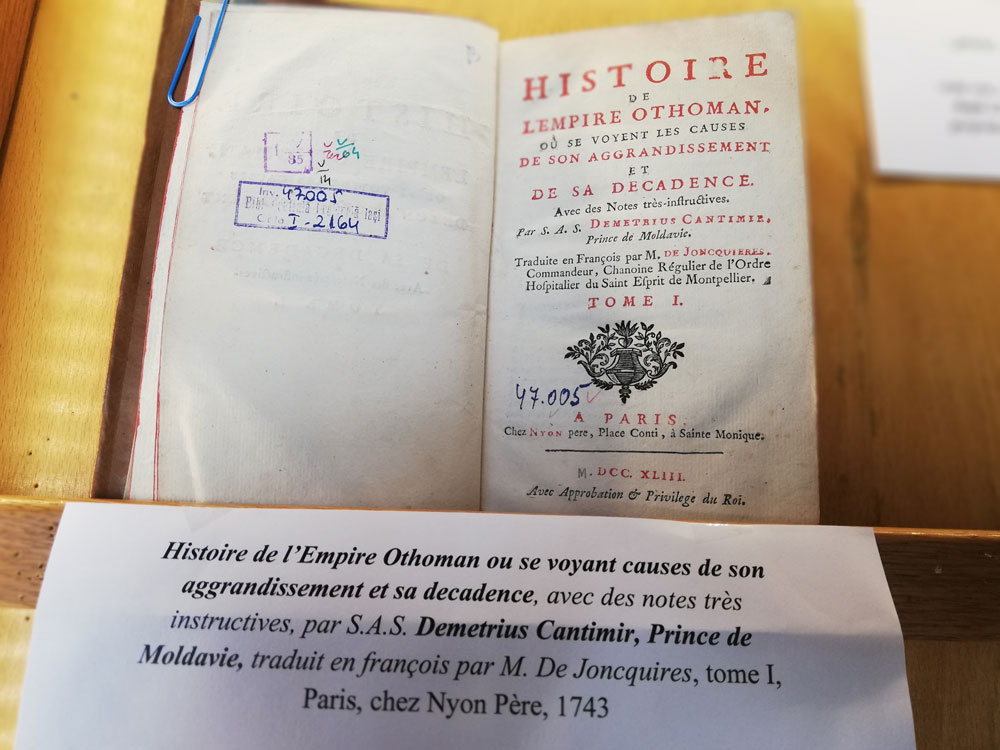 1
85
14
Inv. 47.005
I-2164
HISTOIRE
DE
L'EMPIRE OTHOMAN,
OÙ SE VOYENT LES CAUSES
DE SON AGGRANDISSEMENT
ET
DE SA DECADENCE.
Avec des Notes très-instructives.
Par S. A. S. DEMETRIUS CANTIMIR,
Prince de Moldavie.
Traduite en François par M. DE JONCQUIERES,
Commandeur, Chanoine Régulier de l'Ordre
Hospitalier du Saint Esprit de Montpellier.
TOME I.
47.005
A PARIS.
Chez NYON pere, Place Conti, à Sainte Monique.
M. DCC. XLIII.
Avec Approbation & Privilege du Roi.
Histoire de l'Empire Othoman ou se voyant causes de son
aggrandissement et sa decadence, avec des notes très
instructives, par S.A.S. Demetrius Cantimir, Prince de
Moldavie, traduit en françois par M. De Joncquires, tome I,
Paris, chez Nyon Père, 1743